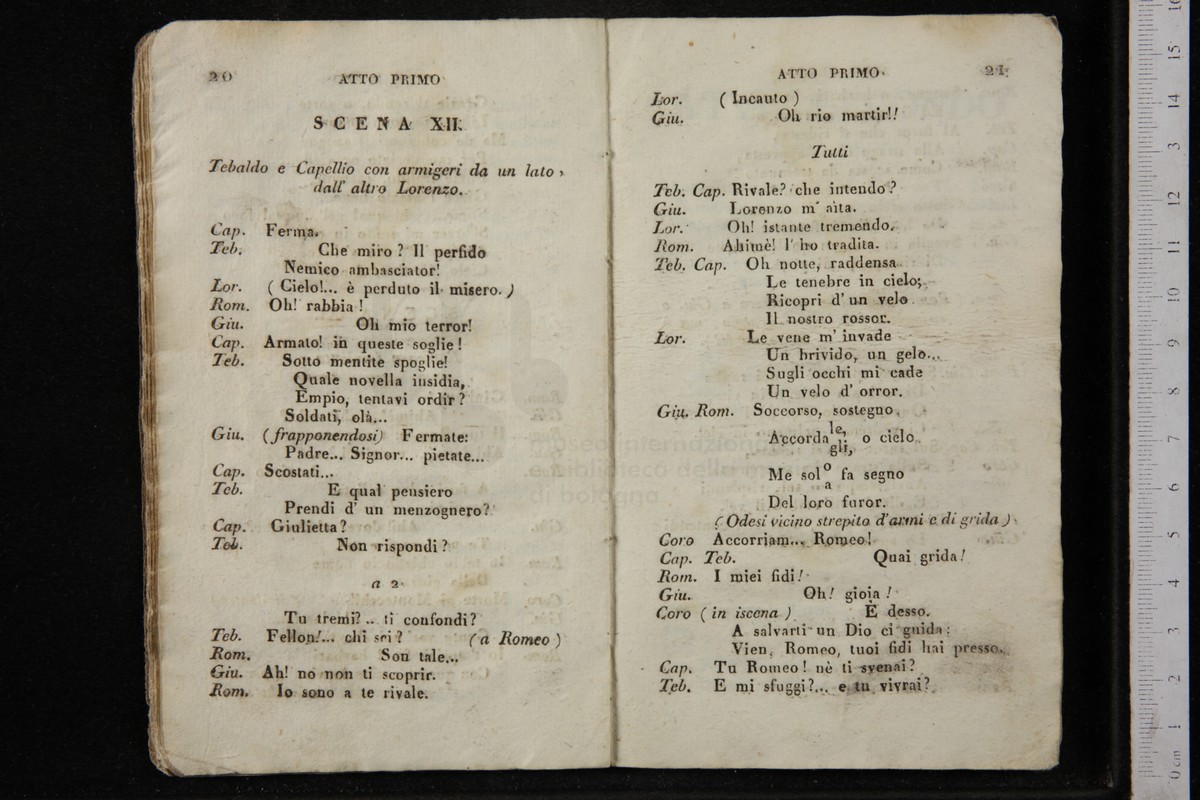 20
ATTO PRIMO
SCENA XII.
Tebaldo e Capellio con armigeri da un lato,
dall' altro Lorenzo.
Cap. Ferma.
Teb. Che miro? Il perfido
Nemico ambasciator!
Lor. (Cielo!... è perduto il misero.)
Rom. Oh! rabbia!
Giu. Oh mio terror!
Cap. Armato! in queste soglie!
Teb. Sotto mentite spoglie!
Quale novella insidia,
Empio, tentavi ordir?
Soldati, olà...
Giu. (frapponendosi) Fermate:
Padre... Signor... pietate...
Cap. Scostati...
Teb. E qual pensiero
Prendi d' un menzognero?
Cap. Giulietta?
Teb. Non rispondi?
a 2
Tu tremi?.. ti confondi?
Teb. Fellon!... chi sei? (a Romeo)
Rom. Son tale...
Giu. Ah! no non ti scoprir.
Rom. Io sono a te rivale.
ATTO PRIMO.
21
Lor. (Incauto)
Giu. Oh rio martir!!
Tutti
Teb. Cap. Rivale? che intendo?
Giu. Lorenzo m' aita.
Lor. Oh! istante tremendo.
Rom. Ahimè! l' ho tradita.
Teb. Cap. Oh notte, raddensa
Le tenebre in cielo;
Ricopri d' un velo
Il nostro rossor.
Lor. Le vene m' invade
Un brivido, un gelo...
Sugli occhi mi cade
Un velo d' orror.
Giu. Rom. Soccorso, sostegno
le,
Accorda o cielo
gli,
Me solo fa segno
a
Del loro furor.
(Odesi vicino strepito d'armi e di grida)
Coro Accorriam... Romeo!
Cap. Teb. Quai grida!
Rom. I miei fidi!
Giu. Oh! gioja!
Coro (in iscena) È desso.
A salvarti un Dio ci guida:
Vien, Romeo, tuoi fidi hai presso.
Cap. Tu Romeo! nè ti svenai?
Teb. E mi sfuggi?... e tu vivrai?
museo internazionale
e biblioteca della musica
di bologna
0 cm 1 2 3 4 5 6 7 8 9 10 11 12 3 14 15 16